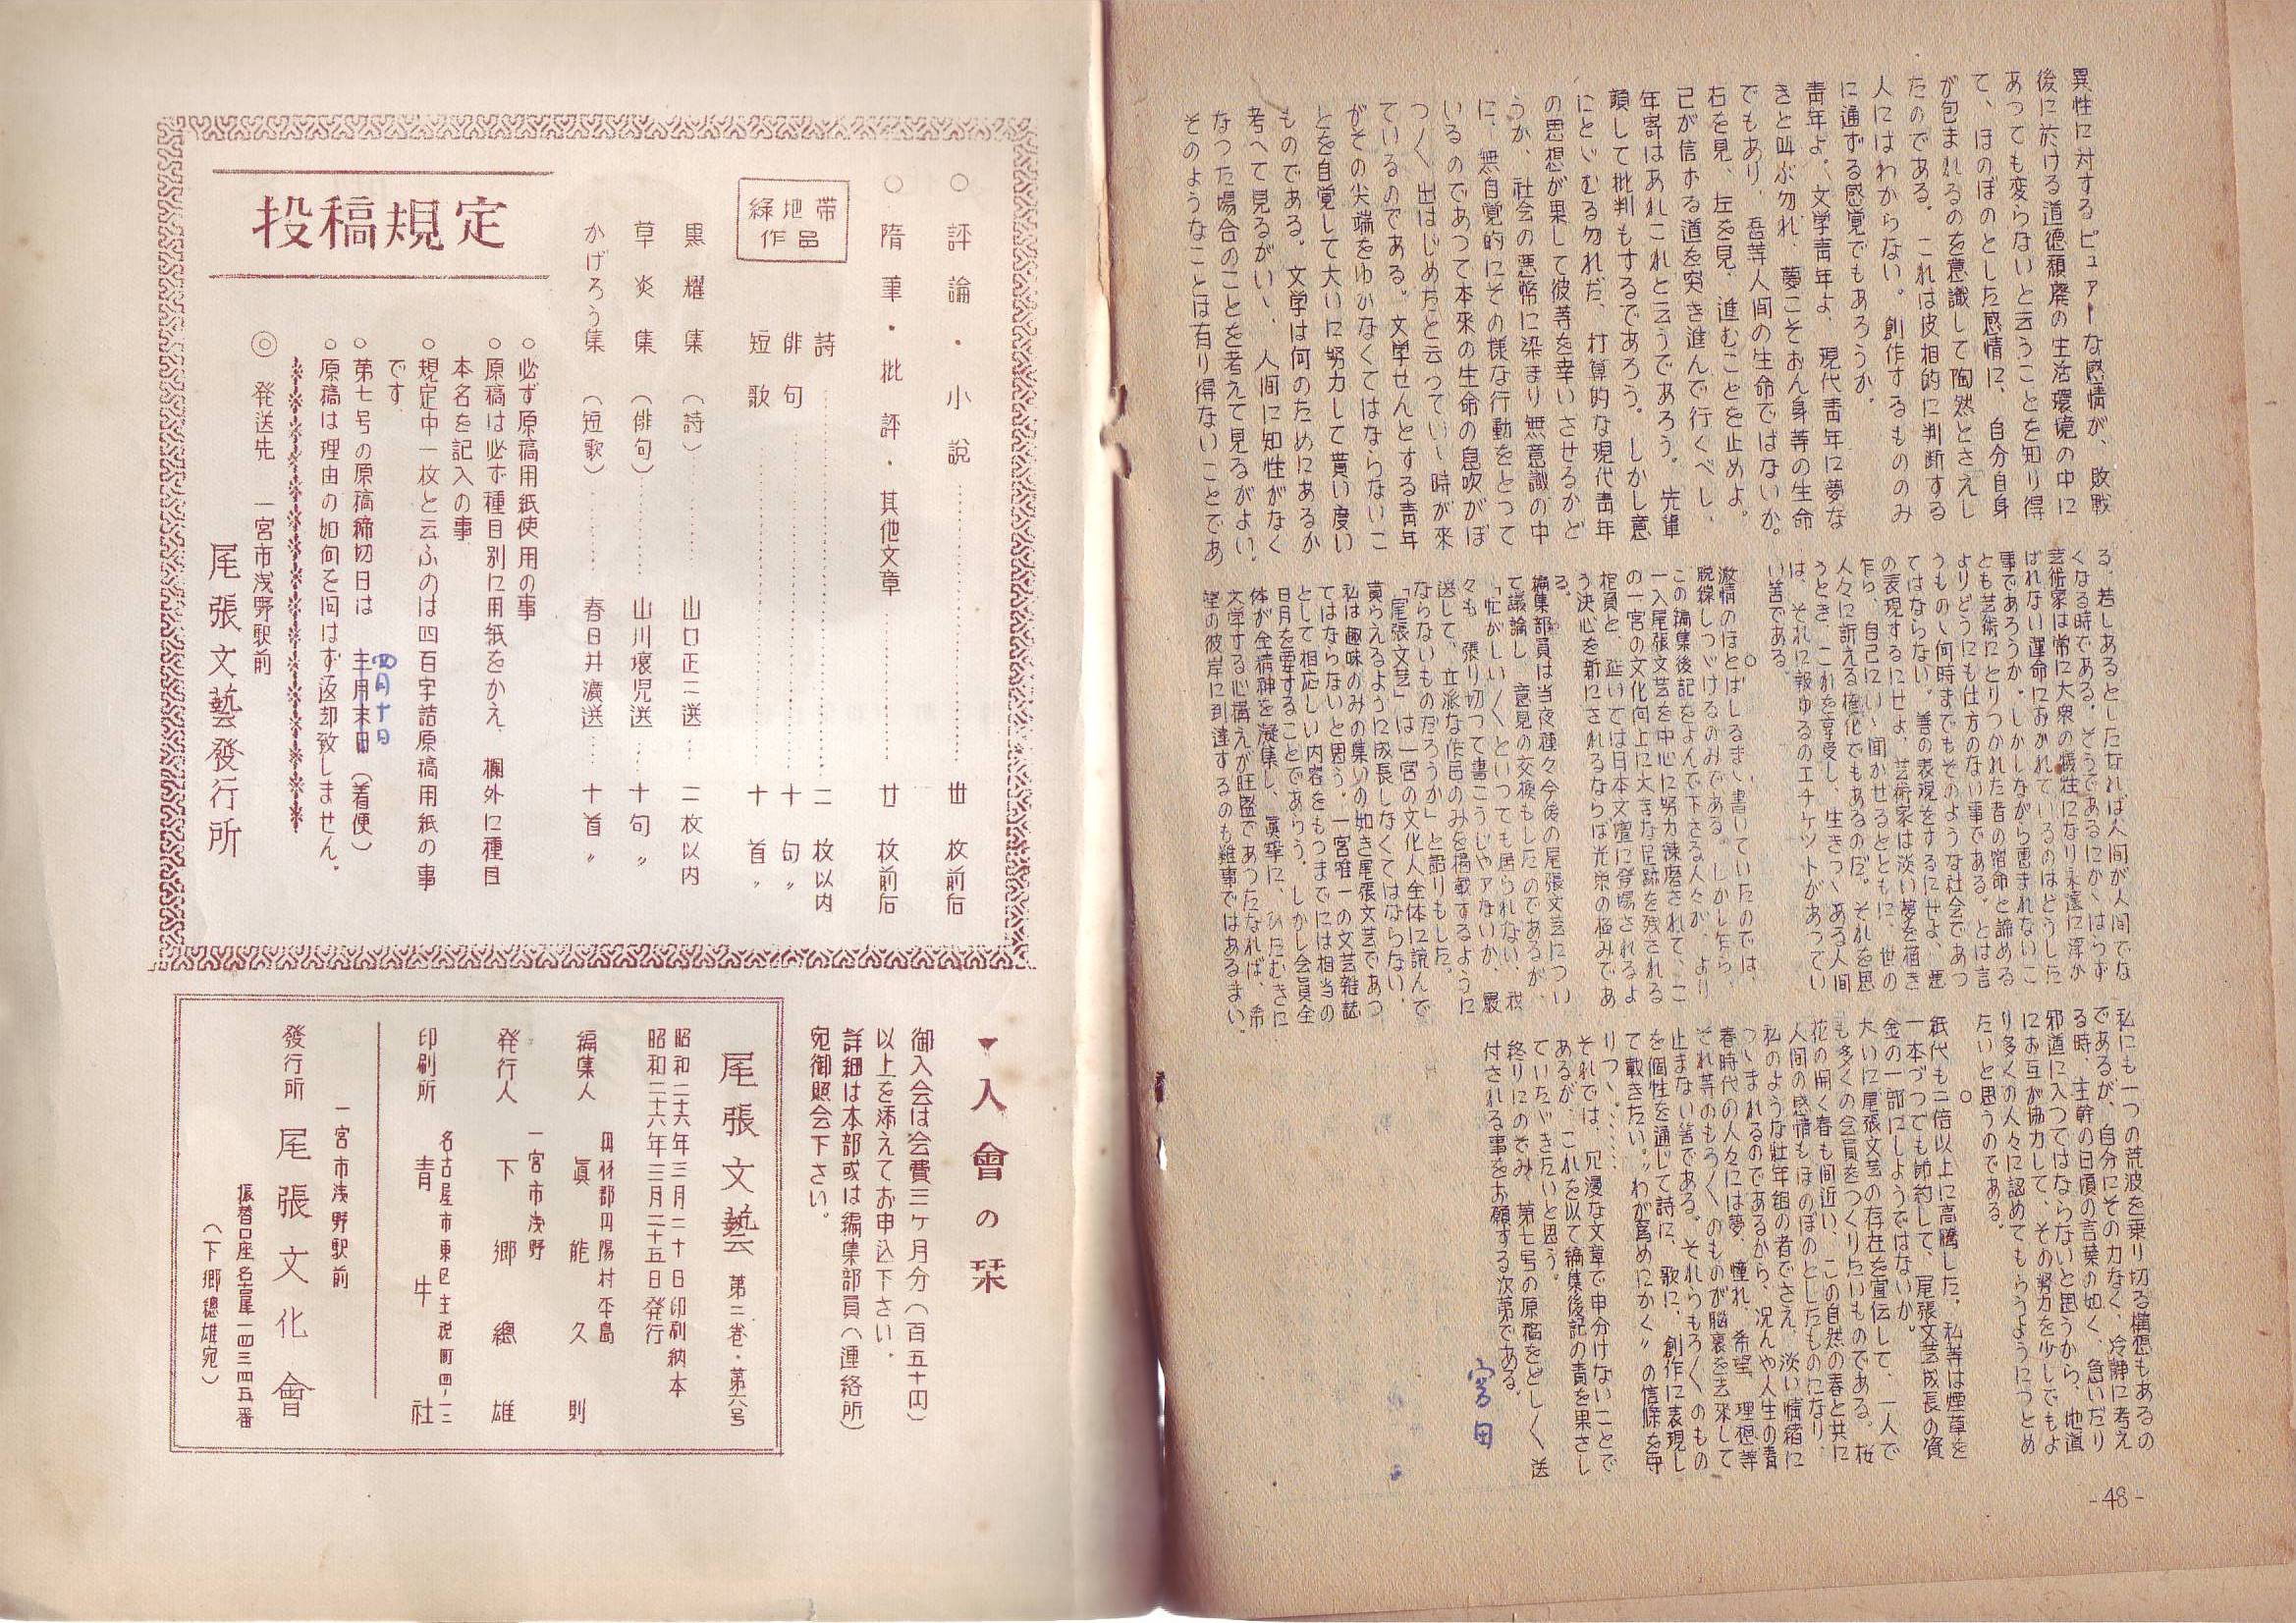 異性に対するピュアーな感情が、敗戦
後に於ける道徳頽廃の生活環境の中に
あっても変らないと云うことを知り得
て、ほのぼのとした感情に、自分自身
が包まれるのを意識して陶然とさえし
たのである。これは皮相的に判断する
人にはわからない。創作するもののみ
に通ずる感覚でもあろうか。
青年よ。文学青年よ、現代青年に夢な
きと叫ぶ勿れ、夢こそおん身等の生命
でもあり、吾等人間の生命ではないか。
右を見、左を見、進むことを止めよ。
己が信ずる道を突き進んで行くべし、
年寄はあれこれと云うであろう。先輩
顔して批判もするであろう。しかし意
にといむる勿れだ、打算的な現代青年
の思想が果して彼等を幸いさせるかど
うか、社会の悪幣に染まり無意識の中
に、無自覚的にその様な行動をとって
いるのであって本來の生命の息吹がぼ
つ〱出はじめたと云っていゝ時が來
ているのである。文学せんとする青年
がその尖端をゆかなくてはならないこ
とを自覚して大いに努力して貰い度い
ものである。文学は何のためにあるか
考へて見るがいゝ、人間に知性がなく
なった場合のことを考えて見るがよい。
そのようなことは有り得ないことであ
る、若しあるとしたなれば人間が人間でな
くなる時である。そうであるにかゝはらず
芸術家は常に大衆の犠性になり永遠に浮か
ばれない運命におかれているのはどうした
事であろうか。しかしながら恵まれないこ
とも芸術にとりつかれた者の宿命と諦める
よりどうにも仕方のない事である。とは言
うものゝ何時までもそのような社会であっ
てはならない。善の表現をするにせよ、悪
の表現するにせよ、芸術家は淡い夢を描き
乍ら、自己にいゝ聞かせるとともに、世の
人々に訴える権化でもあるのだ。それを思
うとき、これを享受し、生きつゝある人間
は、それに報ゆるのエチケットがあってい
い筈である。
○
激情のほとばしるまゝ書いていたのでは、
脱線しつゞけるのみである。しかし乍ら、
この編集後記をよんで下さる人々が、より
一入尾張文芸を中心に努力錬磨されて、こ
の一宮の文化向上に大きな足跡を残される
柁員と、延いては日本文壇に登場されるよ
う決心を新にされるならば光栄の極みであ
る。
編集部員は当夜種々今後の尾張文芸につい
て議論し、意見の交換もしたのであるが、
「忙がしい〱といっても居られない、我
々も張り切って書こうじゃアないか、嚴
送して、立派な作品のみを掲載するように
ならないものだろうか」と語りもした。
「尾張文芸」は一宮の文化人全体に読んで
貰らえるように成長しなくてはならない。
私は趣味のみの集いの如き尾張文芸であっ
てはならないと思う。一宮唯一の文芸雑誌
として相応しい内容をもつまでには相当の
日月を要することであらう。しかし会員全
体が全精神を凝集し、眞摯に、ひたむきに
文学する心構えが旺盛であったなれば、希
望の彼岸に到達するのも難事ではあるまい。
私にも一つの荒波を乗り切る構想もあるの
であるが、自分にその力なく、冷静に考え
る時、主幹の日頃の言葉の如く、急いだり
邪道に入ってはならないと思うから、地道
にお互が協力して、その努力を少しでもよ
り多くの人々に認めてもらうようにつとめ
たいと思うのである。
○
紙代も二倍以上に高騰した、私等は煙草を
一本づつでも節約して、尾張文芸成長の資
金の一部にしようではないか。
大いに尾張文芸の存在を宣伝して、一人で
も多くの会員をつくりたいものである。桜
花の開く春も間近い、この自然の春と共に
人間の感情もほのぼのとしたものになり、
私のような壮年組の者でさえ、淡い情緒に
つゝまれるのであるから、况んや人生の青
春時代の人々には夢、憧れ、希望、理想等
それ等のもろ〱のものが脳裏を去來して
止まない筈である。それらもろ〱のもの
を個性を通じて詩に、歌に、創作に表現し
て戴きたい。〝わが爲めにかく〟の信條を守
りつゝ……
それでは、冗漫な文章で申分けないことで
あるが、これを以て編集後記の責を果さし
ていたゞきたいと思う。
終りにのぞみ、第七号の原稿をどし〱送
付される事をお願する次第である。
宮田
-48-
○評論・小説………卅枚前后
○隋筆・批評・其他文章………廿枚前后
綠地帯作品
詩………二枚以内
俳句………十句〃
短歌………十首〃
黒耀集（詩）………山口正二選…二枚以内
草炎集（俳句）………山川壌児選…十句〃
かげろう集（短歌）………春日井瀇選…十首〃
投稿規定
○必ず原稿用紙使用の事
○原稿は必ず種目別に用紙をかえ、欄外に種目
本名を記入の事
○規定中一枚と云ふのは四百字詰原稿用紙の事
です
○第七号の原稿締切日は 四月十日（着便）
○原稿は理由の如何を問はず返却致しません。
◎発送先 一宮市浅野駅前
尾張文藝發行所
入會の栞
御入会は会費三ヶ月分（百五十円）
以上を添えてお申込下さい．
詳細は本部或は編集部員（連絡所）
宛御照会下さい。
尾張文藝 第二巻・第六号
昭和二十六年三月二十日印刷納本
昭和二十六年三月二十五日発行
丹羽郡丹陽村平島
編集人 眞能久則
一宮市浅野
発行人 下郷總雄
名古屋市東区主税町四ノ一三
印刷所 青牛社
一宮市浅野駅前
發行所 尾張文化會
振替口座名古屋一四三四五番
（下郷總雄宛）